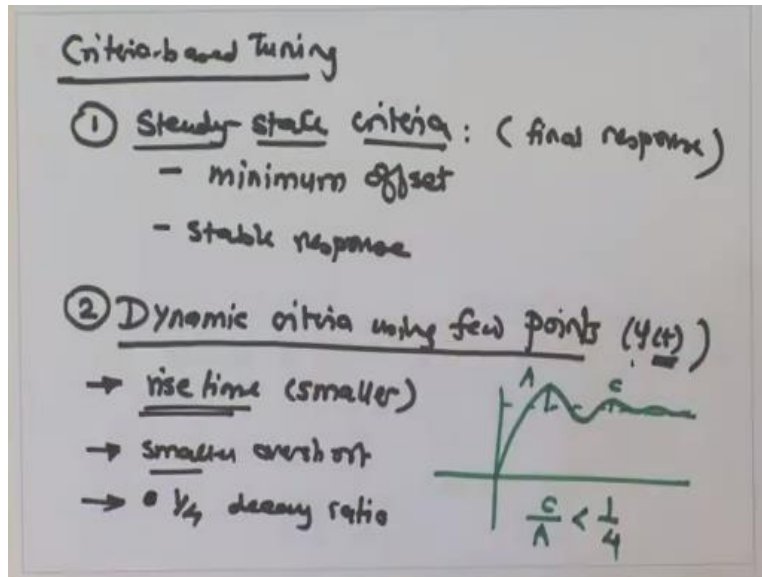 Criteria-based Tuning
① Steady-state criteria: (final response)
- minimum offset
- stable response
② Dynamic criteria using few points (y(t))
→ rise time (smaller)
→ smaller overshoot
→ 1/4 decay ratio
A
C
C/A < 1/4